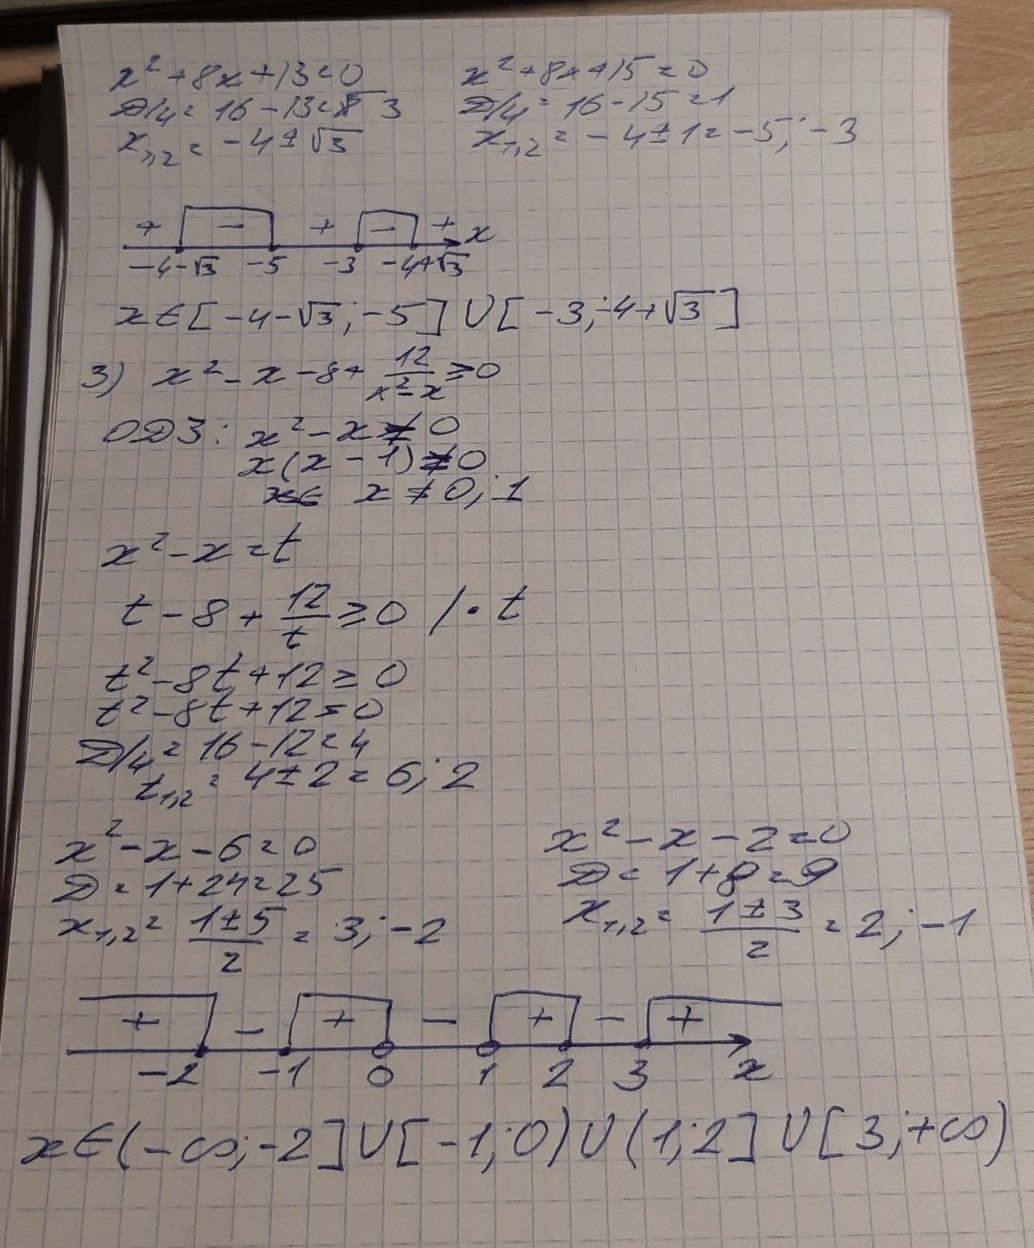 x² + 8x + 13 = 0
D/4 = 16 - 13 = 3
x₁,₂ = -4 ± √3
x² + 8x + 15 = 0
D/4 = 16 - 15 = 1
x₁,₂ = -4 ± 1 = -5; -3
+ - + - + x
-4-√3 -5 -3 -4+√3
x ∈ [-4-√3; -5] ∪ [-3; -4+√3]
3) x² - x - 8 + 12/(x² - x) ≥ 0
ОДЗ: x² - x ≠ 0
x(x - 1) ≠ 0
x ≠ 0; 1
x² - x = t
t - 8 + 12/t ≥ 0 / · t
t² - 8t + 12 ≥ 0
t² - 8t + 12 = 0
D/4 = 16 - 12 = 4
t₁,₂ = 4 ± 2 = 6; 2
x² - x - 6 = 0
D = 1 + 24 = 25
x₁,₂ = (1 ± 5)/2 = 3; -2
x² - x - 2 = 0
D = 1 + 8 = 9
x₁,₂ = (1 ± 3)/2 = 2; -1
+ - + - + - +
-2 -1 0 1 2 3 x
x ∈ (-∞; -2] ∪ [-1; 0) ∪ (1; 2] ∪ [3; +∞)